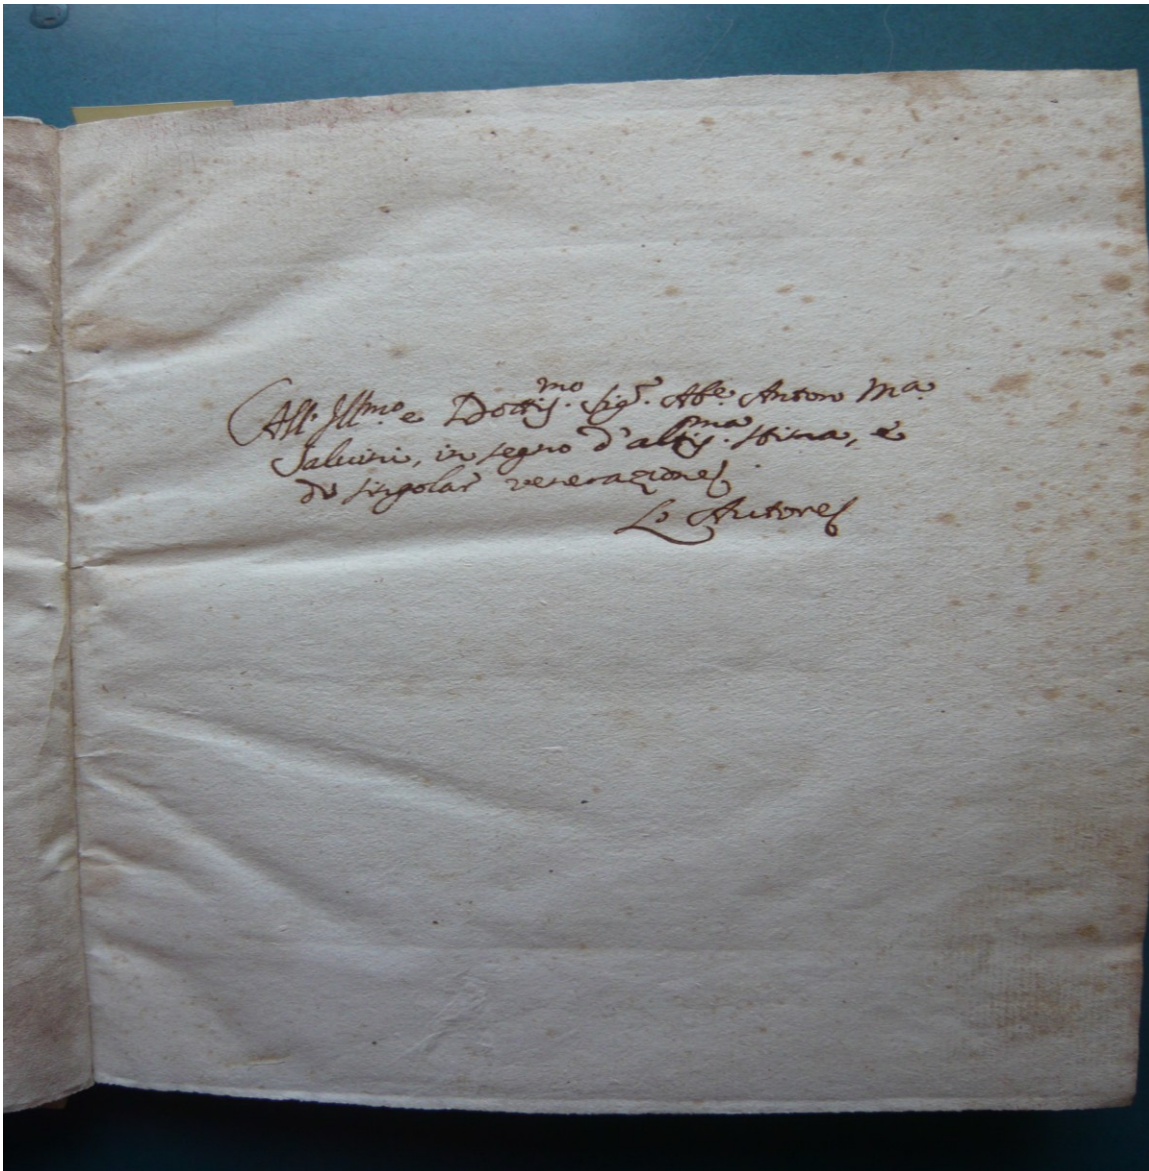 All' Ill.mo e Dottiss.mo Sig.r Ab.e Anton M.a
Salvini, in segno d'altiss.ma stima, e
di singolar venerazione
Lo Autore